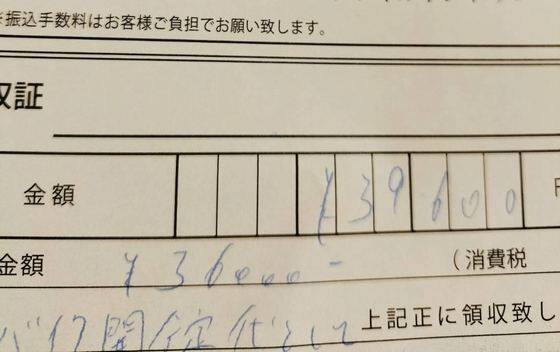 ※振込手数料はお客様ご負担でお願い致します。
収証
金額 ¥39600
金額 ¥36000- (消費税
上記正に領収致し